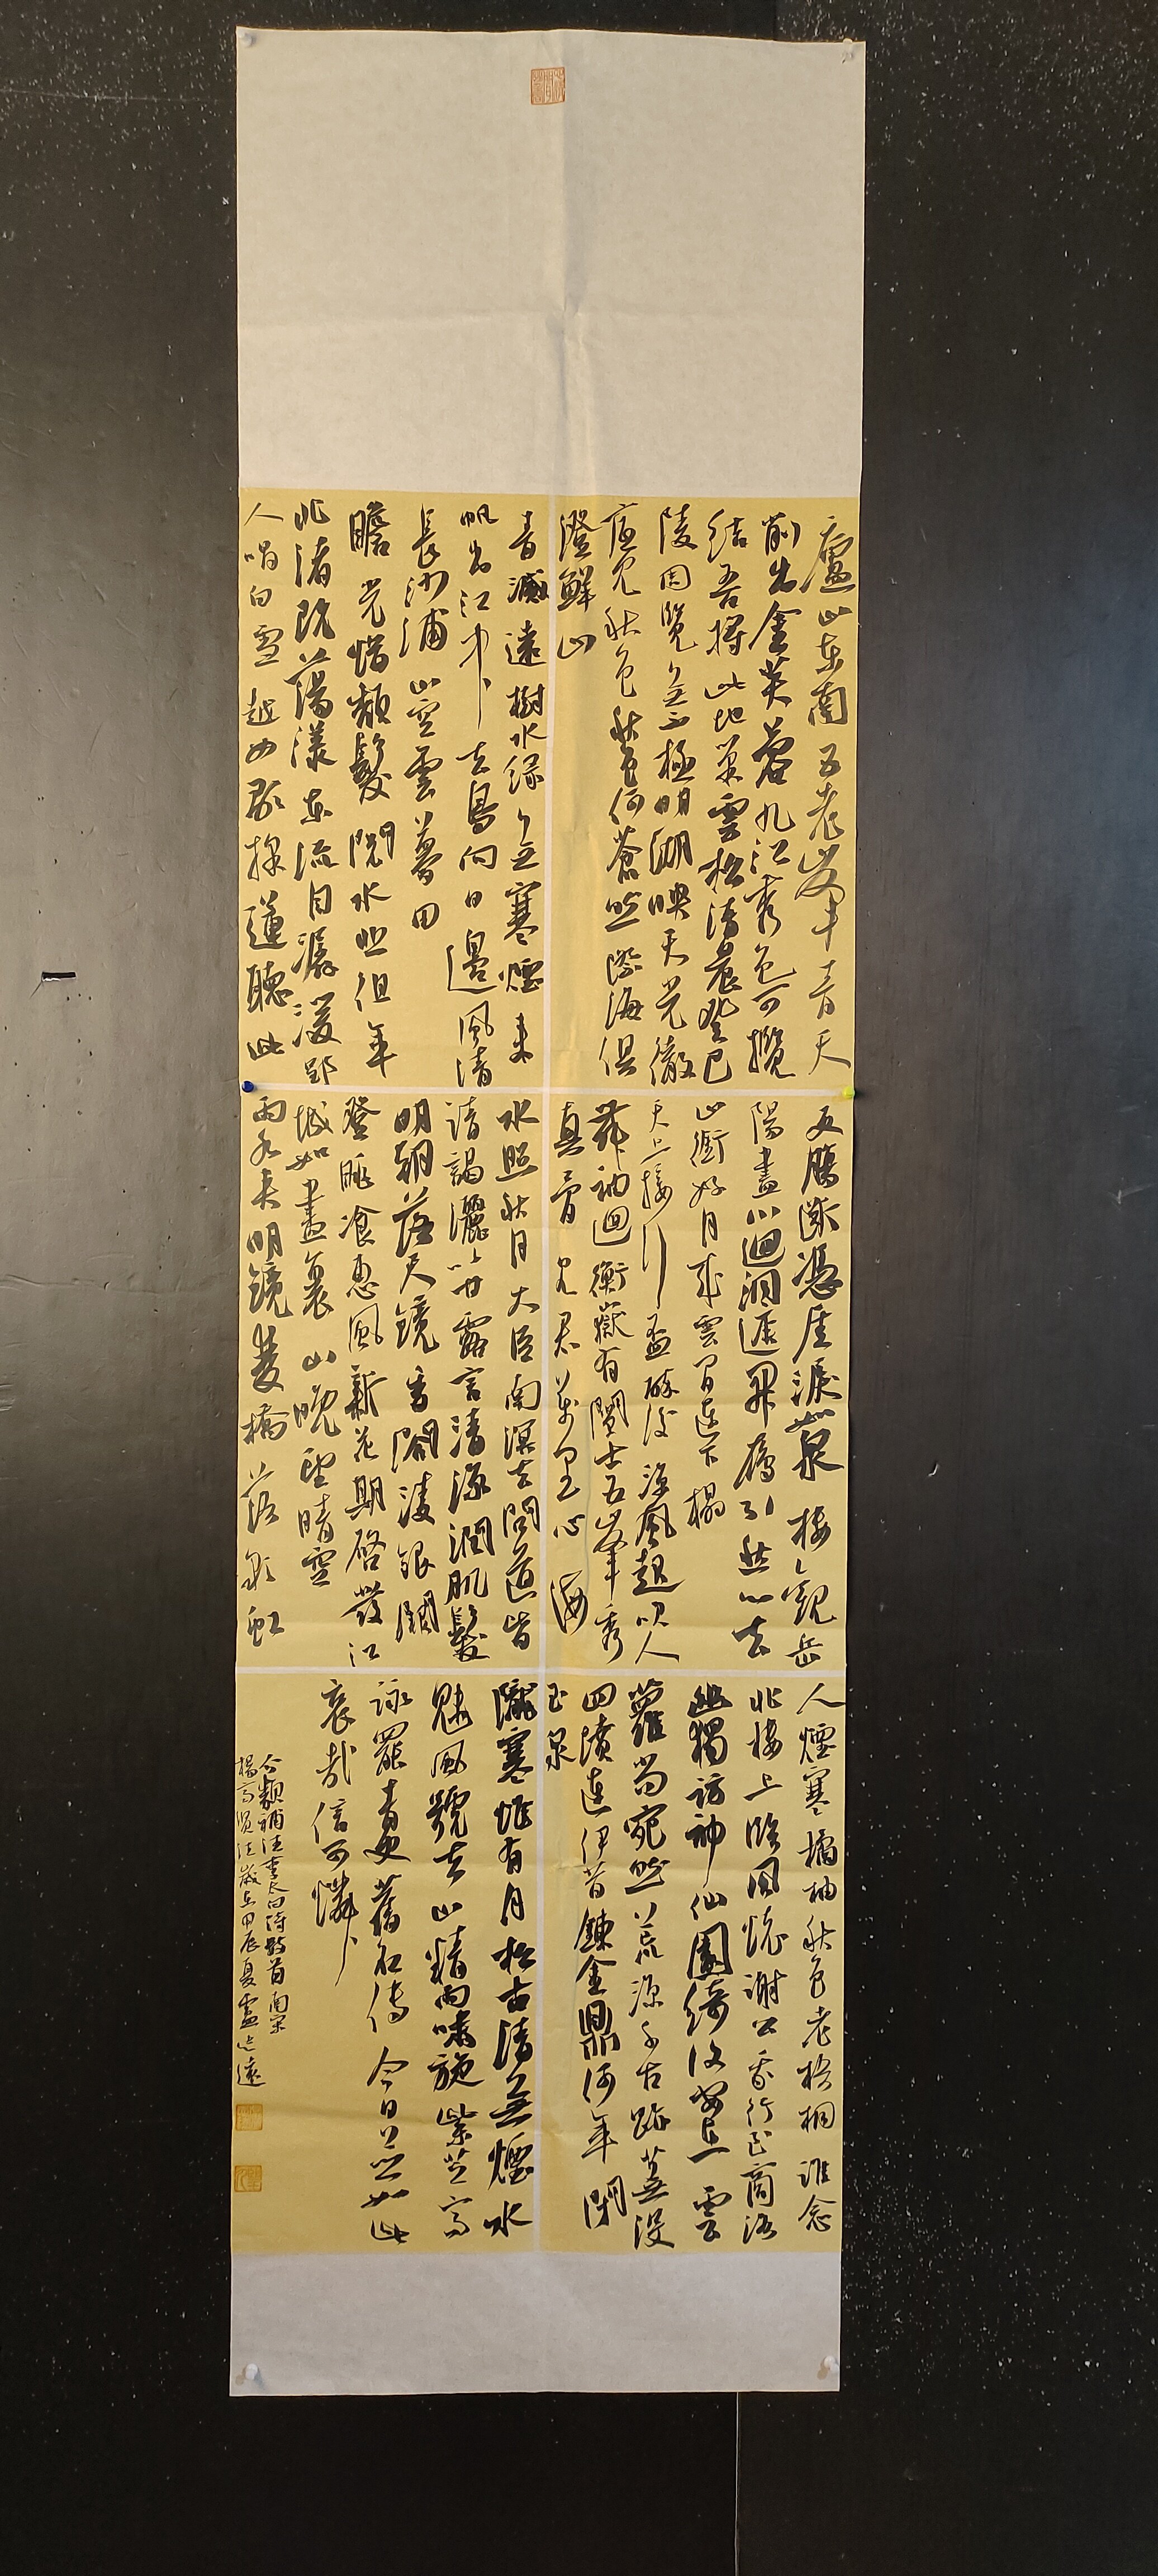 廬山東南五老峯青天
削出金芙蓉九江秀色可攬
結吾將此地巢雲松清晨登巴
陵周覽無不極明湖映天光徹
底見秋色秋色何蒼然際海俱
澄鮮山
青滅遠樹水綠無寒煙來
帆出江中去鳥向日邊風清
長沙浦山空雲夢田
瞻光惜頹髮閱水悲徂年
北渚既蕩漾東流自潺湲郢
人唱白雪越女歌採蓮聽此
更腸斷憑崖淚如泉樓觀岳
陽盡川迥洞庭開雁引愁心去
山銜好月來雲間連下榻
天上接行盃醉後涼風起吹人
舞袖迴衡嶽有闡士五峯秀
真骨見君萬里心海
水照秋月大臣南溟去問道皆
請謁灑以甘露言清涼潤肌髮
明朝落天鏡香閣凌銀闕
登眺飡惠風新花期啓發江
城如畫裏山晚望晴空
兩水夾明鏡雙橋落彩虹
人煙寒橘柚秋色老梧桐誰念
北樓上臨風懷謝公我行至商洛
幽獨訪神仙園綺復安在雲
蘿尚宛然荒涼千古跡蕪沒
四墳連伊昔鍊金鼎何年閉
玉泉
隴寒惟有月松古清無煙木
魅風號去山精雨嘯旋紫芝高
詠罷青史舊名傳今日並如此
哀哉信可憐
分類補注李太白詩數首南宋
楊齊賢注歲在甲辰夏盧志遠